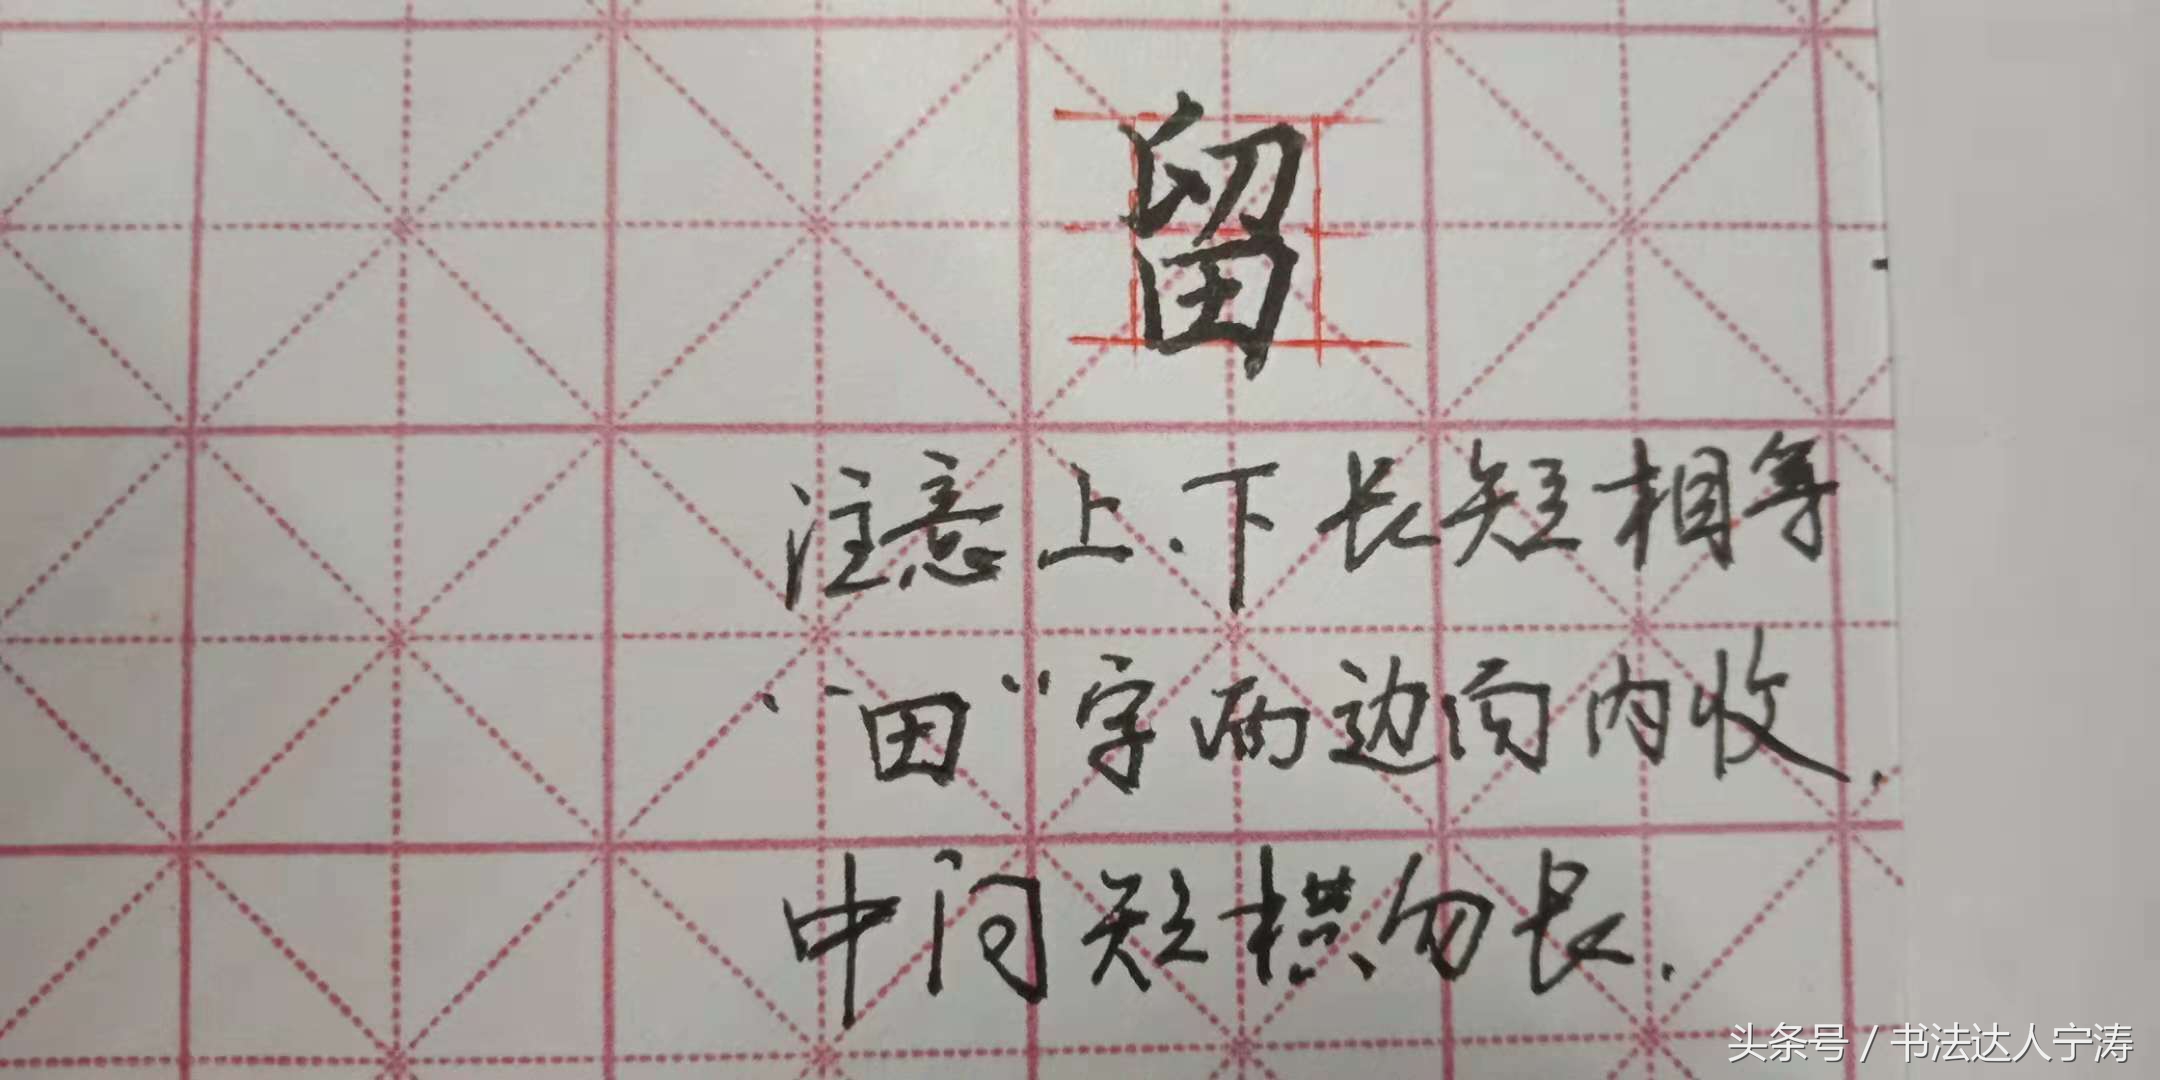 留
注意上.下长短相等
“田”字两边向内收.
中间短横勿长.
头条号 / 书法达人宁涛